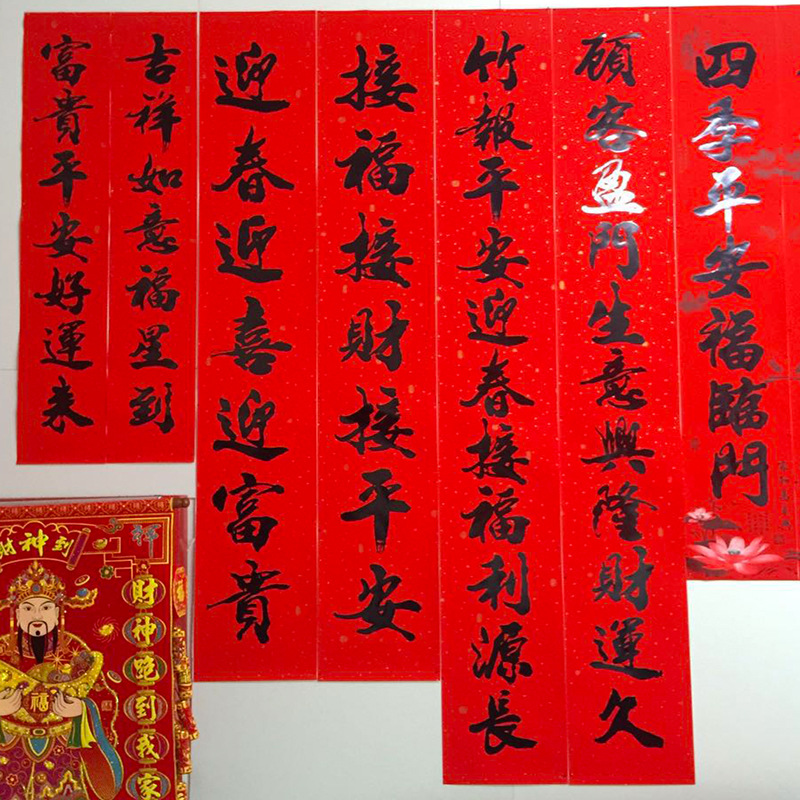 四季平安福臨門
顧客盈門生意興隆財運久
竹報平安迎春接福利源長
接福接財接平安
迎春迎喜迎富貴
吉祥如意福星到
富貴平安好運来
財神到
財神跑到我家
福